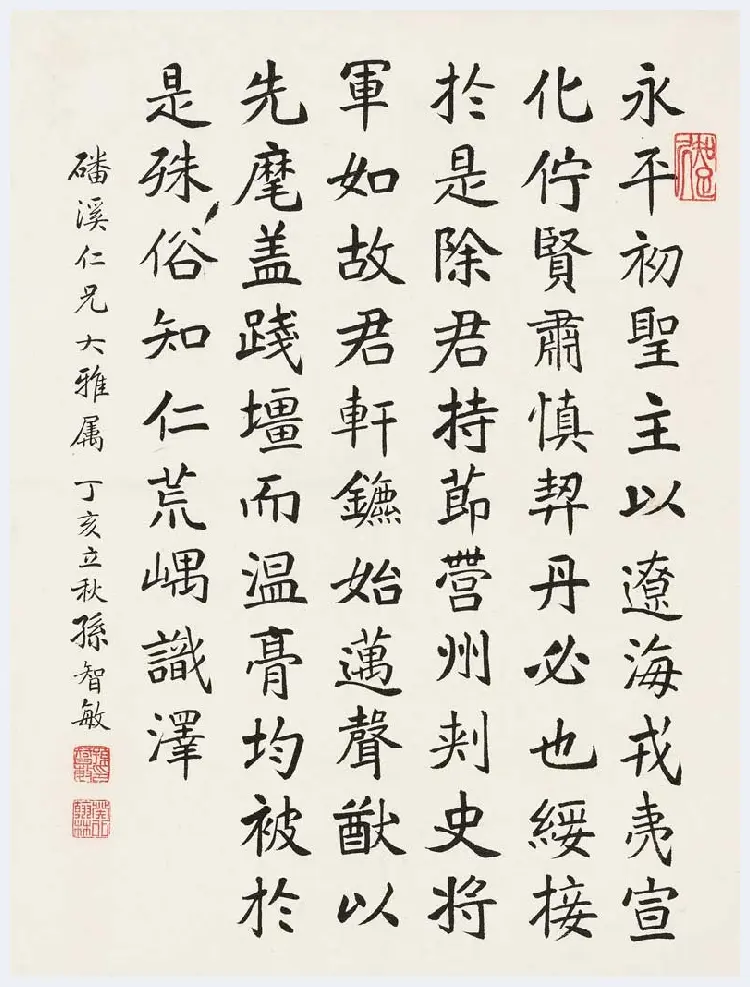 永平初聖主以遼海戎夷宣
化佇賢肅慎契丹必也綏接
於是除君持節營州刺史將
軍如故君軒鑣始邁聲猷以
先麾盖踐壃而温膏均被於
是殊俗知仁荒嵎識澤
磻溪仁兄大雅属 丁亥立秋孫智敏
癸卯翰林